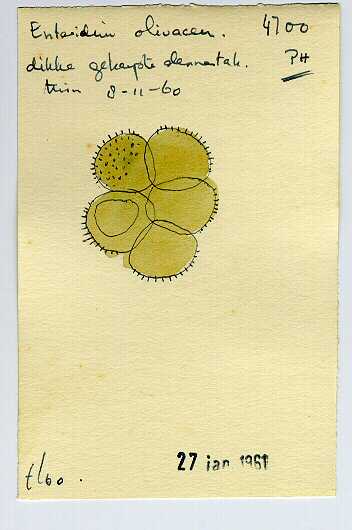 Enteridium olivaceu. 4700
dikke gekapte dennetak. PH
tuin 8-11-60
t/60.
27 jan 1961